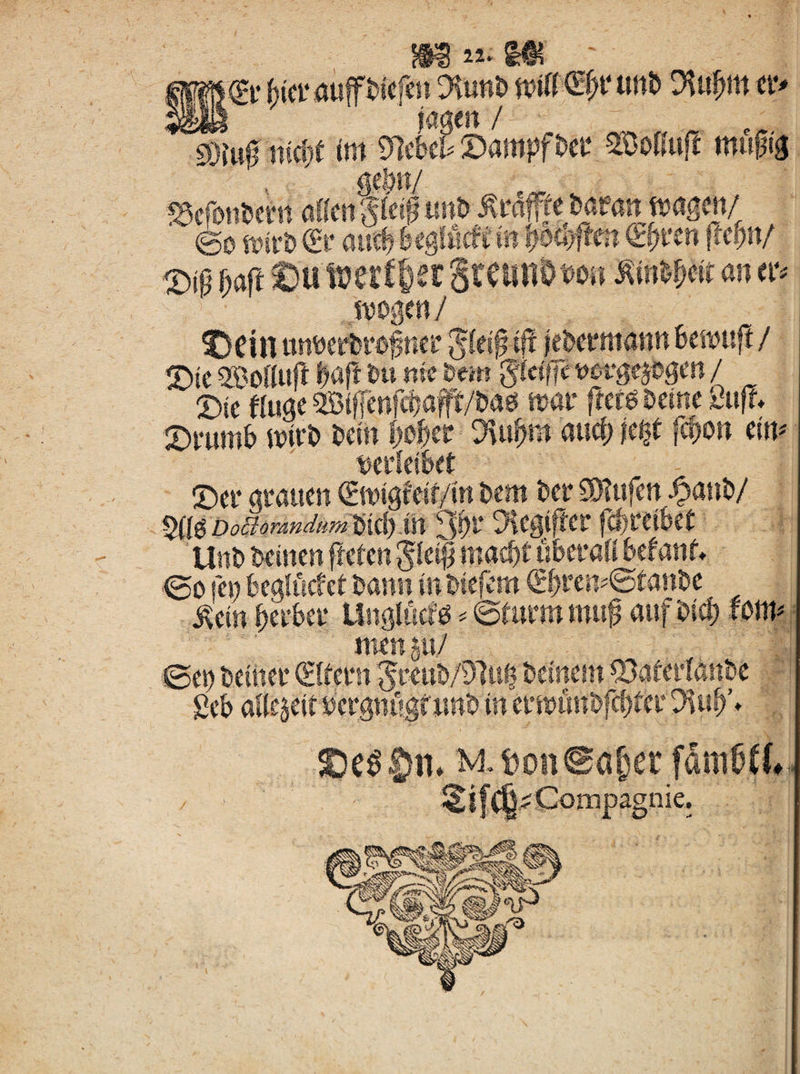 22.
WEr hier auff diesen Rund will Ehr und Ruhm er-
jagen /
Muß nicht im Nebel-Dampf der Wollust müßig
gehn/
Besondern allen Fleiß und Kräffte daran wagen/
So wird Er auch beglückt in höchsten Ehren stehn/
Diß hast Du werther Freund von Kindheit an er-
wogen /
Dein unverdroßner Fleiß ist jedermann bewust /
Die Wollust hast du nie dem Fleisse vorgezogen /
Die kluge Wissenschafft/das war stets deine Lust.
Drumb wird dein hoher Ruhm auch jetzt schon ein-
verleibet
Der grauen Ewigkeit/in dem der Musen Hand/
Als Doctorandum dich in Ihr Register schreibet
Und deinen steten Fleiß macht überall bekant.
So sey beglücket dann in diesem Ehren-Stande
Kein herber Unglücks-Sturm muß auf dich kom-
men zu/
Sey deiner Eltern Freud/Nutz deinem Vaterlande
Leb allezeit vergnügt und in erwündschter Ruh'.
Des Hn. M. von Saher sämbtl.
Tisch-Compagnie.